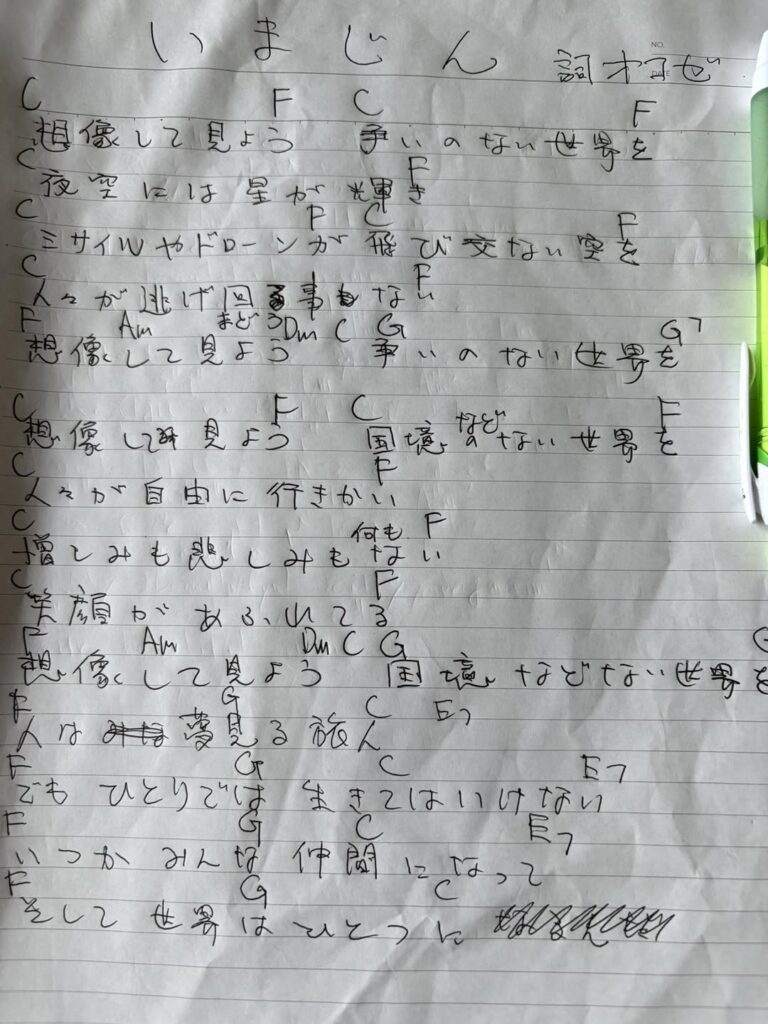 いまじん
詞 オコゼ
NO.
DATE
C F C F
想像して見よう 争いのない世界を
C F
夜空には星が輝き
C F C F
ミサイルやドローンが飛び交ない空を
C F
人々が逃げ回る事もない
まどう
F Am Dm C G G7
想像して見よう 争いのない世界を
C F C F
など
想像して見よう 国境のない世界を
C F
人々が自由に行きかい
C 何も F
憎しみも悲しみもない
C F
笑顔があふれてる
F Am Dm C G
想像して見よう 国境などない世界を
F G C E7
人は 夢見る旅人
F G C E7
でもひとりでは生きてはいけない
F G C E7
いつかみんな仲間になって
F G C
そして世界はひとつに